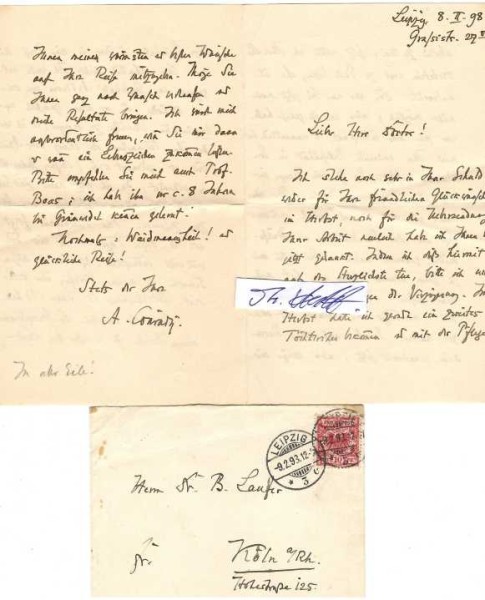 Leipzig 8. II. 98
Grassistr. 27 II
Lieber Herr Doctor!
Ich stehe noch sehr in Ihrer Schuld
weder für Ihre freundlichen Glückwünsche
im Herbst, noch für die Uebersendung
Ihrer Arbeit neulich habe ich Ihnen b
jetzt gedankt. Indem ich dies hiermit
nach das tue, bitte ich
der Verzeihung. Im
Herbst hatte ich gerade ein zweites
Töchterchen bekommen u. mit der Pflege
Ihnen meinen wärmsten u. besten Wünsche
auf Ihre Reise mitzugeben. Möge Sie
Ihnen ganz nach Wunsch verlaufen u.
reiche Resultate bringen. Ich würde mich
außerordentlich freuen, wenn Sie mir dann
u. wann ein Lebenszeichen zukommen ließen.
Bitte empfehlen Sie mich auch Prof.
Boas; ich habe ihn vor c. 8 Jahren
in kennen gelernt!
Nochmals: Waidmannsheil! u.
glückliche Reise!
Stets der Ihre
A. Conrady.
In aller Eile!
LEIPZIG
-9.2.98.12-
* 3 c
Herrn Dr. B. Laufer
Köln a/Rh.
Hohestraße 125.